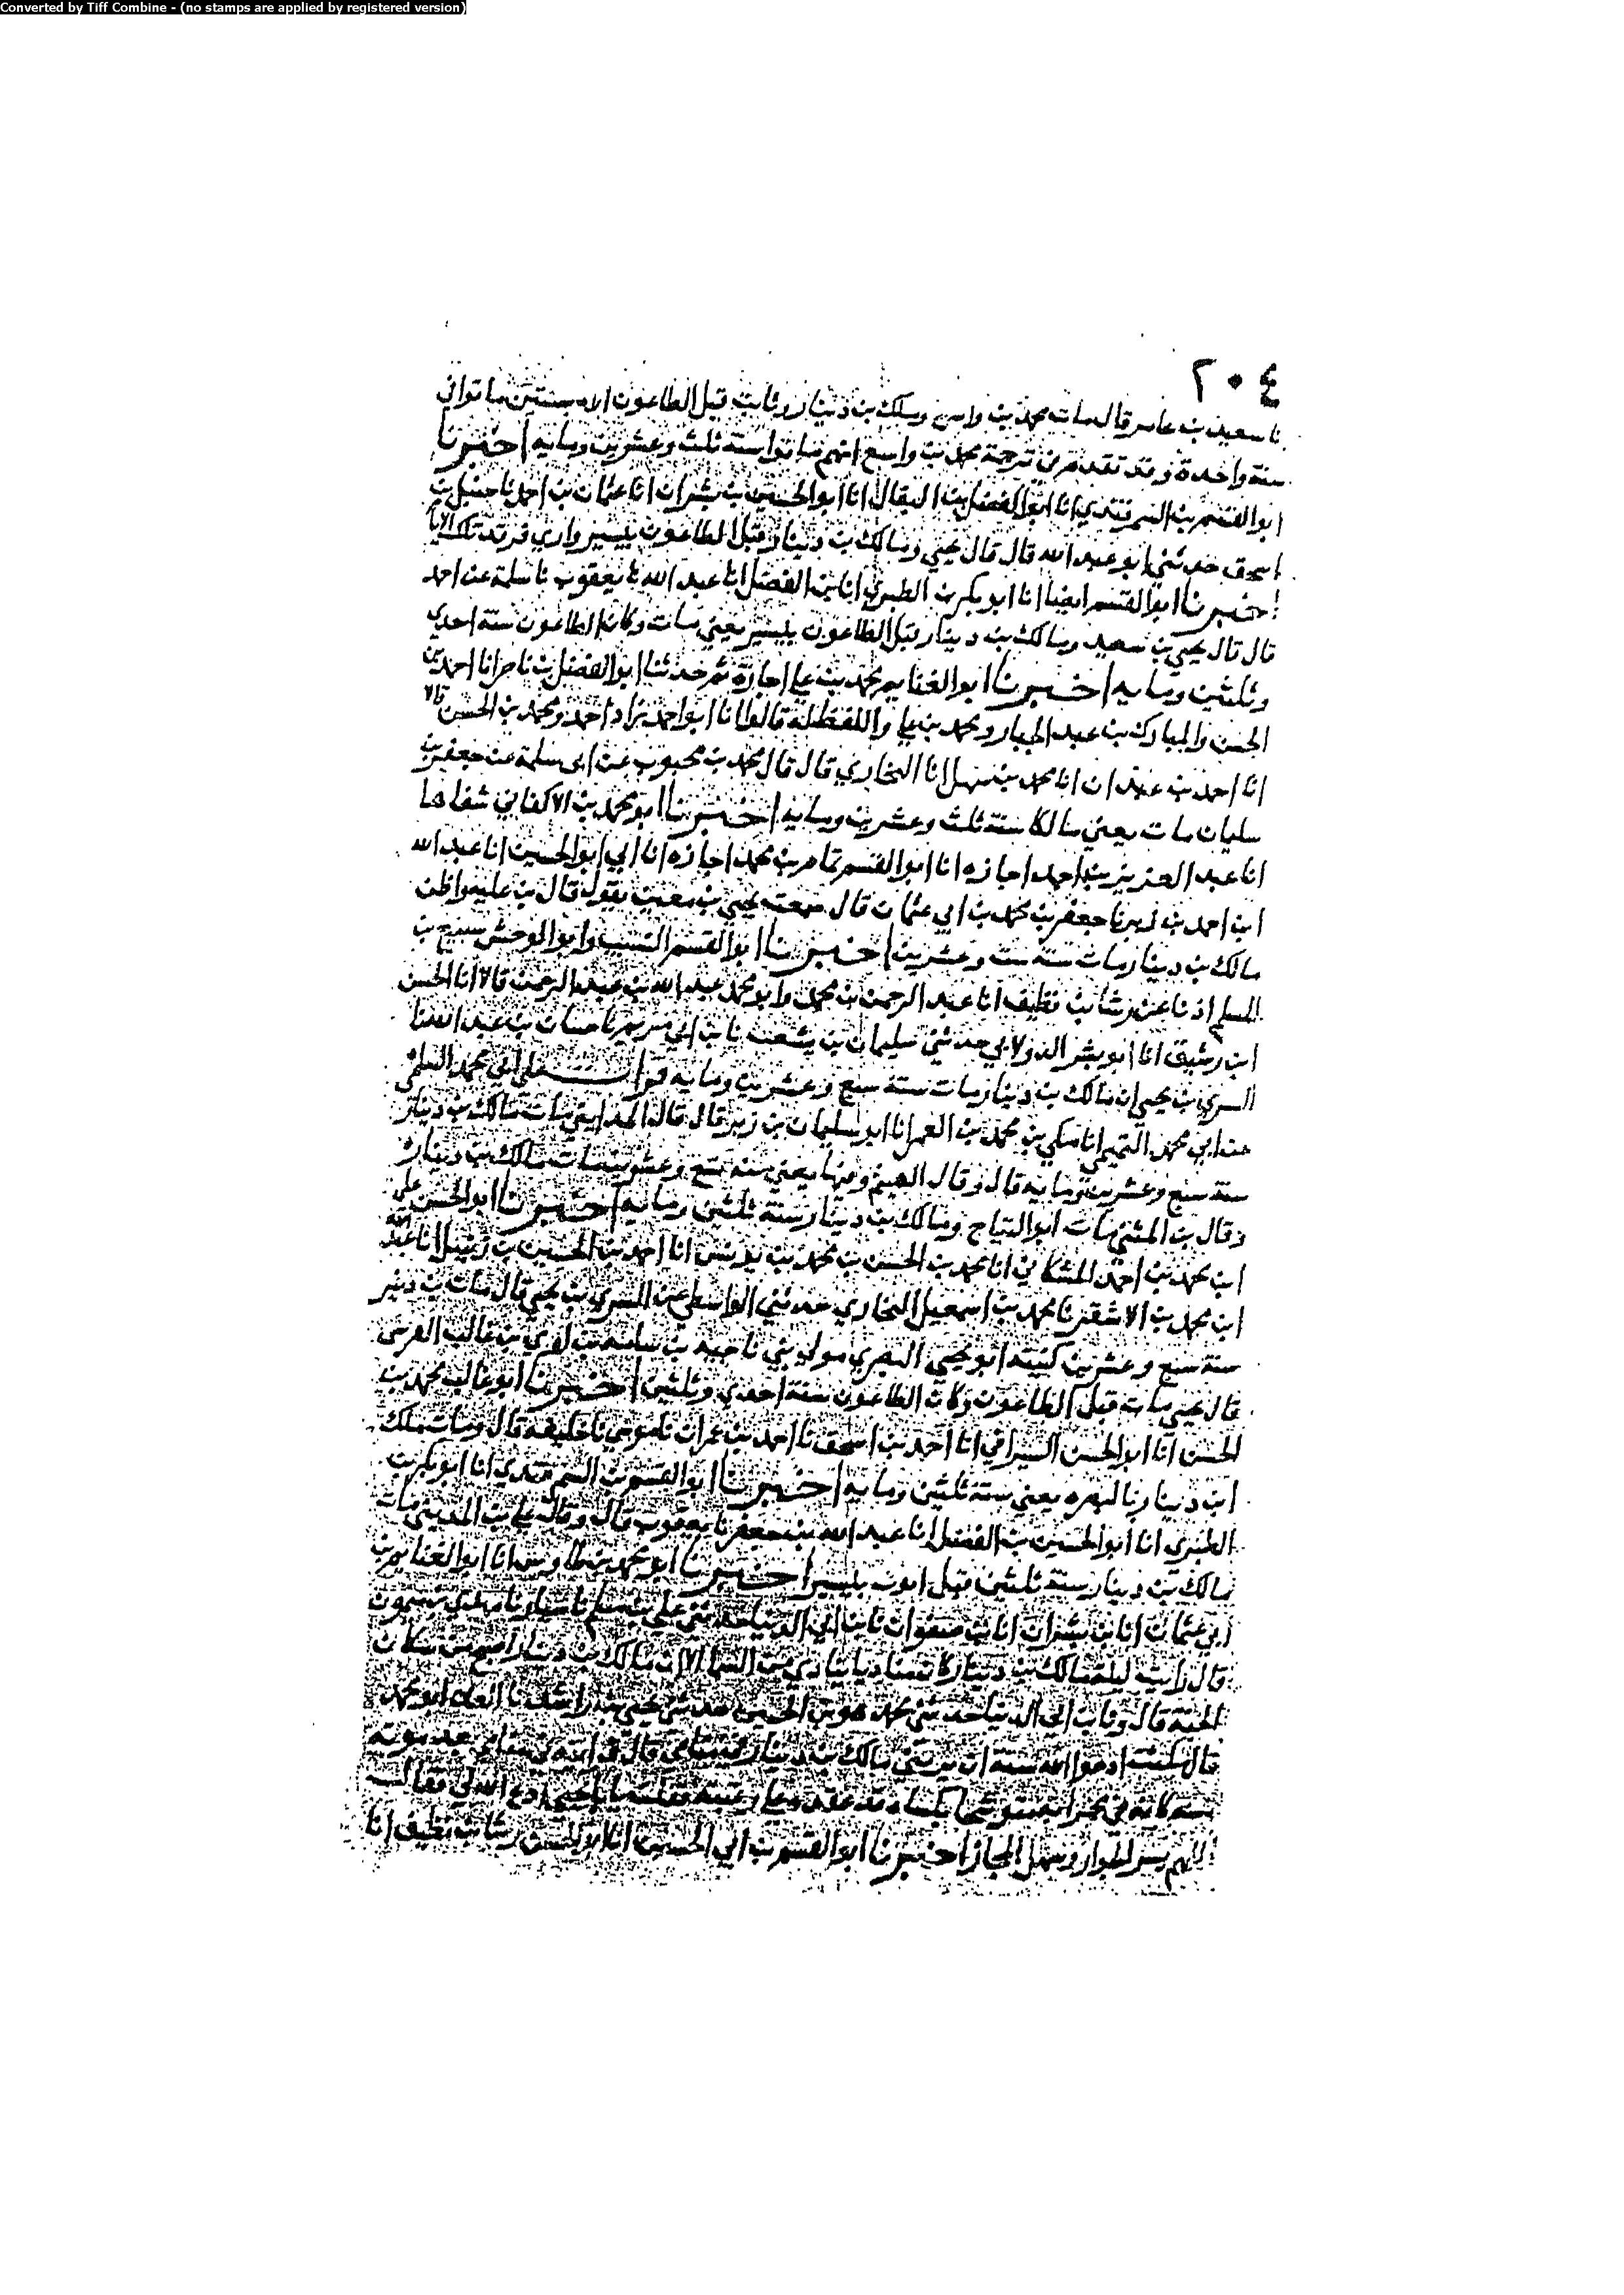 Converted by Tiff Combine - (no stamps are applied by registered version)
٢٠٤
نا سعيد بن عامر قال مات محمد بن واسع وملك بن دينار وثابت قبل الطاعون الا سنتين ماتوا في
سنة واحدة وقد تقدم في ترجمة محمد بن واسع انهم ماتوا سنة ثلث وعشرين ومايه اخبرنا
ابوا القسم بن السمرقندي انا ابوا الفضل بن البقال انا ابو الحسين بن بشران انا عثمان بن احمد نا حنبل بن
اسحق حدثني ابو عبد الله قال قال يحيي ومالك بن دينار قبل الطاعون بيسير واري فرقد تلك الايام
اخبرنا ابوا القسم ايضا انا ابو بكر بن الطبري انا بن الفضل انا عبد الله نا يعقوب نا سلمة عن احمد
قال قال يحيي بن سعيد ومالك بن دينار قبل الطاعون بيسير يعني مات وكان الطاعون سنة احدي
وثلثين ومايه اخبرنا ابوا الغنايم محمد بن علي اجازة ثم حدثنا ابوا الفضل بن ناصر انا احمد بن
الحسن والمبارك بن عبد الجبار ومحمد بن علي واللفظ له قالوا انا ابوا احمد زاد احمد ومحمد بن الحسن قالا
انا احمد بن عبدان انا محمد بن سهل انا البخاري قال قال محمد بن محبوب عن ابي سلمة عن جعفر بن
سليمان مات يعني مالكا سنة ثلث وعشرين ومايه اخبرنا ابو محمد بن الاكفاني شفاها
انا عبد العزيز بن احمد اجازه انا ابوا القسم تمام بن محمد اجازه انا ابي ابو الحسين انا عبد الله
ابن احمد بن زبر نا جعفر بن محمد بن ابي عثمان قال سمعت يحيي بن معين يقول قال بن عليه واظن
مالك بن دينار مات سنة ست وعشرين اخبرنا ابوا القسم النسيب وابو الوحش سبيع بن
المسلم اذنا عن رشا بن نظيف انا عبد الرحمن بن محمد وابو محمد عبد الله بن عبد الرحمن قالا انا الحسن
ابن رشيق انا ابو بشر الدولابي حدثني سليمان بن اشعث نا بن ابي مريم نا حسان بن عبد الله نا
السري بن يحيي ان مالك بن دينار مات سنة سبع وعشرين ومايه قرات علي ابي محمد السلمي
عن ابي محمد التميمي انا مكي بن محمد بن الغمر انا ابو سليمان بن زبر قال قال المدايني مات مالك بن دينار
سنة سبع وعشرين ومايه قال وقال الهيثم وفيها يعني سنة سبع وعشرين مات مالك بن دينار
وقال بن المثني مات ابوا التياح ومالك بن دينار سنة ثلثين ومايه اخبرنا ابوا الحسن علي
ابن محمد بن احمد المشكاني انا محمد بن الحسن بن محمد بن يونس انا احمد بن الحسين بن زنبيل انا عبد الله
ابن محمد بن الاشقر نا محمد بن اسمعيل البخاري حدثني الواسطي عن السري بن يحيي قال مات بن دينر
سنة سبع وعشرين كنيته ابو يحيي البصري مولي بني ناجيه بن سامه بن لوي بن غالب القرشي
قال يحيي مات قبل الطاعون وكان الطاعون سنة احدي وثلثين اخبرنا ابو غالب محمد بن
الحسن انا ابو الحسن السيرافي انا احمد بن اسحق نا احمد بن عمران نا موسي نا خليفه قال ومات ملك
ابن دينار بالبصره يعني سنة ثلثين ومايه اخبرنا ابوا القسم بن السمرقندي انا ابو بكر بن
الطبري انا ابوا الحسين بن الفضل انا عبد الله بن جعفر نا يعقوب قال وقال علي بن المديني مات
مالك بن دينار سنة ثلثين قبل ايوب بيسير اخبرنا ابو محمد بن طاوس انا ابوا الغنايم بن
ابي عثمان انا بن بشران انا بن صفوان نا بن ابي الدنيا حدثني علي بن مسلم نا سيار نا مهدي بن ميمون
قال رايت ليلة مات مالك بن دينار كان مناديا ينادي من السما الا ان مالك بن دينار اصبح من سكان
الجنة قال ونا بن ابي الدنيا حدثني محمد هو بن الحسين حدثني يحيي بن راشد نا ابو محمد
قال كنت ادعوا الله سنة ان يريني مالك بن دينار في منامي قال فرايته في منامي بعد موته
بسنة كانه في محرابه متوشحا بكساه قد عقده علي رقبته فقلت يا ابا يحيي ادع الله لي فقال
اللهم يسر الجواز وسهل المجاز اخبرنا ابوا القسم بن ابي الحسين انا ابو الحسن رشا بن نظيف انا